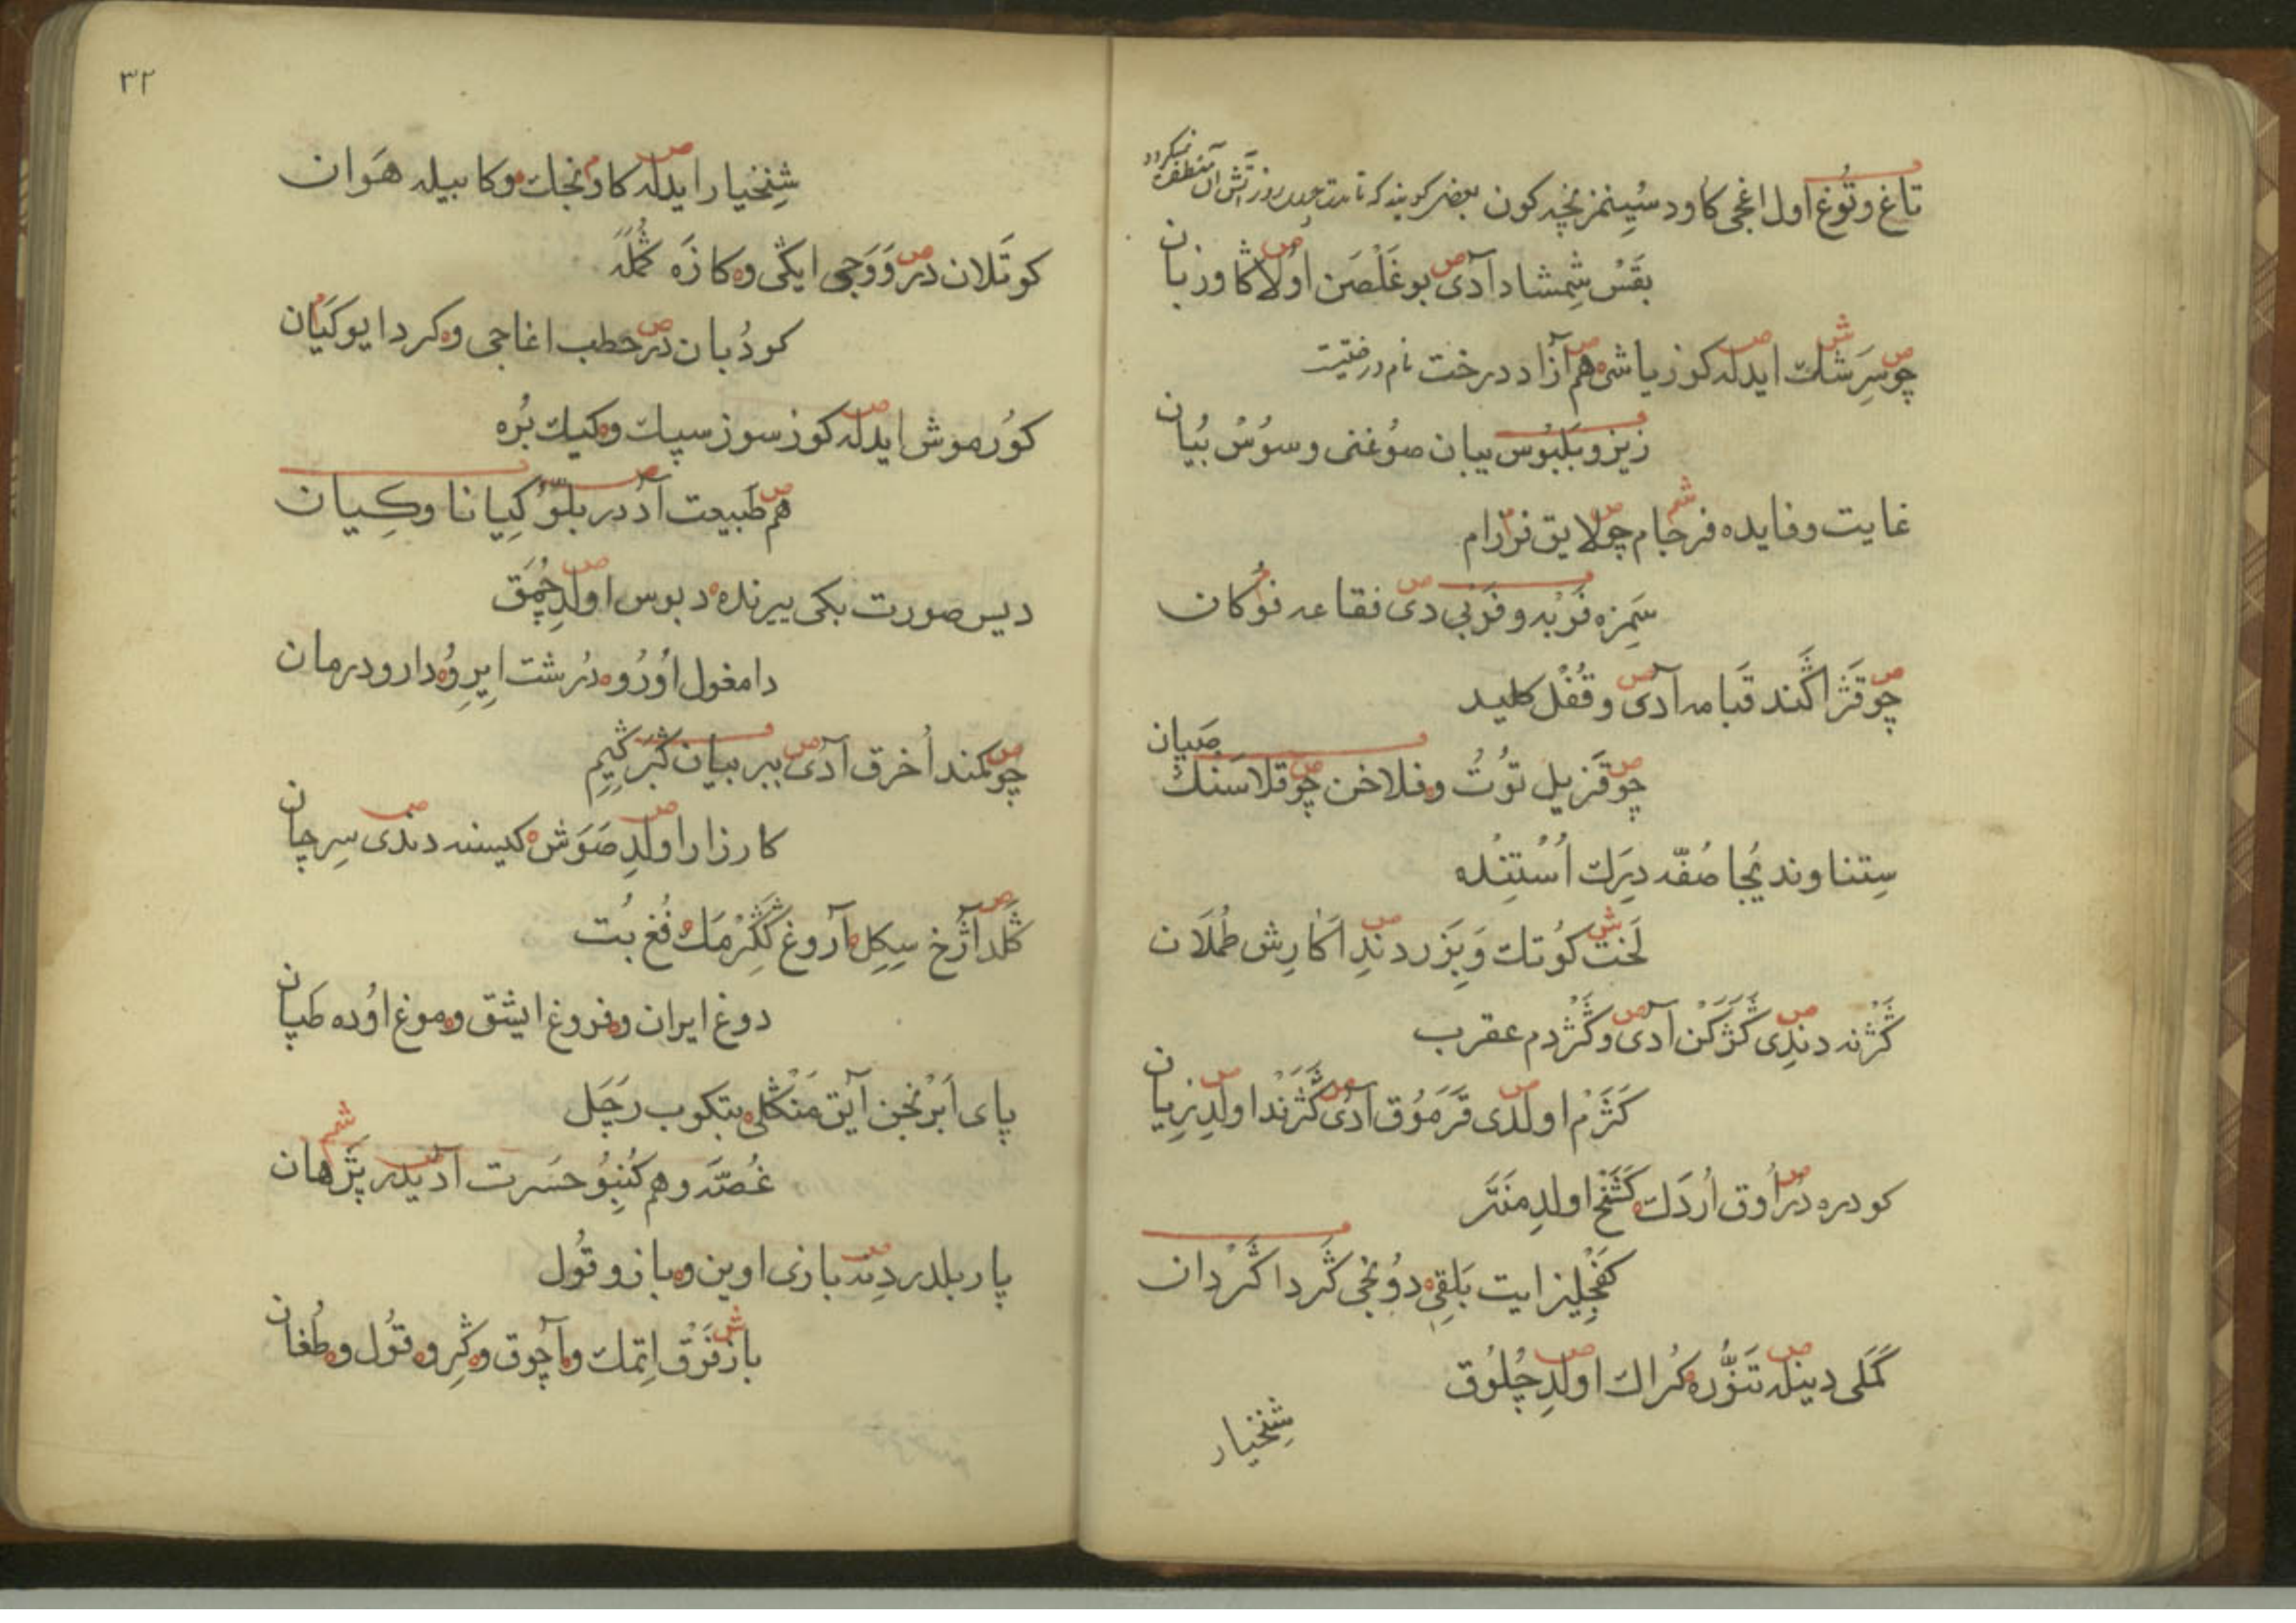 تاغ و تُوغ اول اغجی کاود سُیِنمز نچه کون بعضر کویند که تا مدت چهل روز آتش آن منطفی نمیکردد
بقَسْ شِمشاد آدی بوغَلْصَن اوُلا کاو زبان
چو سِرَشك ایدله کوز یاشی هم آزاد درخت نام درختیست
زیز و بَلبُوس یبان صوُغنی و سوُسْ بُیان
غایت و فایده فرجام چو لایق فرزام
سَمِزه فَرْبه و فَرْبی دی فقاعه فوُکان
چو قَژاکَند قبامه آدی و قُفْل کلید
چو قَزیل توُتُ و فلاخن چو قلاسَنك صَپان
سِتناوند یُجا صُفّه دِیرَك اُسْتُنِده
لَخت کوُتك وَیَزَر دندِ اَکارِش طُملَان
کَژنه دندِی کَژکَن آدی و کَژدم عقرب
کَژَم اولدی قَرَموُق آدی کَژَند اولدِ زِیان
کودره دُر اُوق اُردَك کَشَفْح اولدِ مَنَتَر
کفَچلیز ایت بَلِقِی دوُنخی کَرد اکَرْدان
کَمَلی دینله تَنوُّره کُراك اولدِ چُلوُق
شِنخیار
٣٢
شِنِخیار ایدله کاونجك و کابیله هَوان
کوتَلان در وَوَجی ایکی و کازَه کُملَه
کودُبان در حطب اغاجی و کرد ایو کَیَان
کوُرموش ایدله کوز سوز سپك و کیك بُره
هم طَبیعت آدُدر بلّوُ کِیانا و کِیان
دیس صورت بکی بیرنده دبوس اولدِ چُمَق
دامغول اوُرُو دُرشت ایرِ و دارو درمان
چو کمند اُخرق آدی ببر بیان کَبَر کَیِم
کارزار اولدِ صَوَش کیسنه دندی سِرجان
کَلد آژخ سِکِل آروغ کَکِرْمَك فُغ بُت
دوغ ایران و فروغ ایشق و موغ اوُده طَپان
پای اَبْرنجن آیق مَنکَلی پتکوب رَجَل
غُصَّه و هم کُنِبوُ حسرت آدیدر پَژهان
پار بلدر دِنه بازی اوین و بازو قُول
باز فَرْق اِتمك و آچوق و کِرو قوُل و طُغان